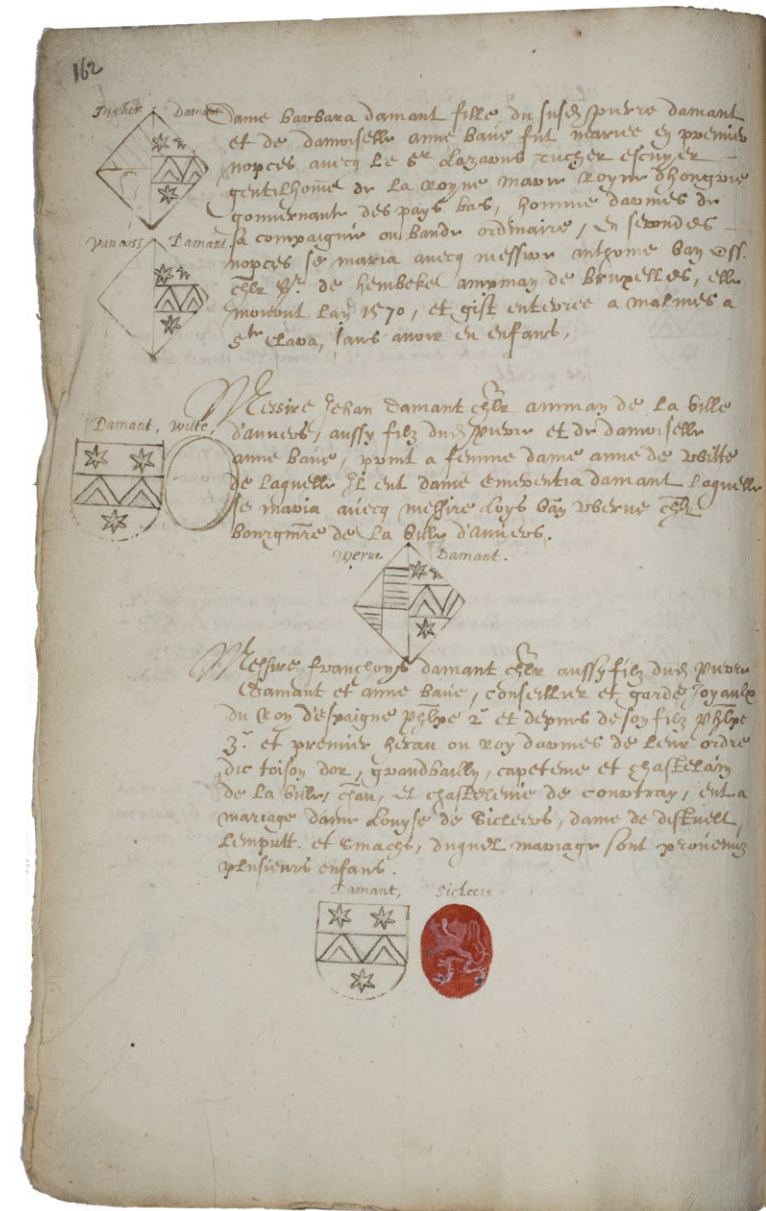 162
Tucher Damant
Dame barbara damant fille du susd. pierre damant
et de damoiselle anne baue fut mariee en premier
nopces avecq le Sr. Lazarus tucher escuyer
gentilhome de la Royne marie Royne dhongrie
gouvernante des pays bas, homme darmes de
sa compaignie ou bande ordinaire, en secondes
van oss Damant
nopces se maria avecq messire anthoine van oss.
chlr Sr. de hembeke amman de bruxelles, elle
mourut lan 1570, et gist enterree a malines a
Ste Clara, sans avoir eu enfans,
Messire Jehan damant chlr amman de la ville
Damant, wilte,
d'anvers, aussy filz dud. pierre et de damoiselle
anne baue, print a femme dame anne de wilte
de laquelle Il eut dame emerentia damant laquelle
se maria avecq messire Loys van wberue chlr
bourgmre de la ville d'anvers.
wperue Damant.
Messire franchoys damant chlr aussy filz dud. pierre
damant et anne baue, conseillier et garde Joyaulx
du Roy d'espaigne phlpe 2e. et depuis de son filz phlpe
3e. et premier herau ou roy darmes de leur ordre
dic toison dor, grandbailly, capeteine et chastelain
de la ville, chau, et chastelenie de courtray, eut a
mariage dame Louyse de Sicleers, dame de distvelt
Lemputt. et Smachs, duquel mariage sont provenuz
plusieurs enfans.
Damant, Sicleers